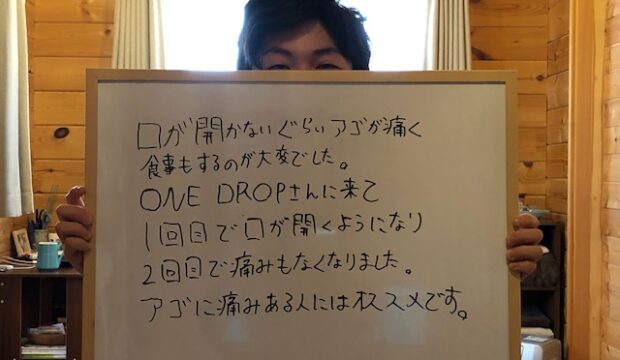 口が開かないぐらいアゴが痛く
食事もするのが大変でした。
ONE DROPさんに来て
1回目で口が開くようになり
2回目で痛みもなくなりました。
アゴに痛みある人にはオススメです。